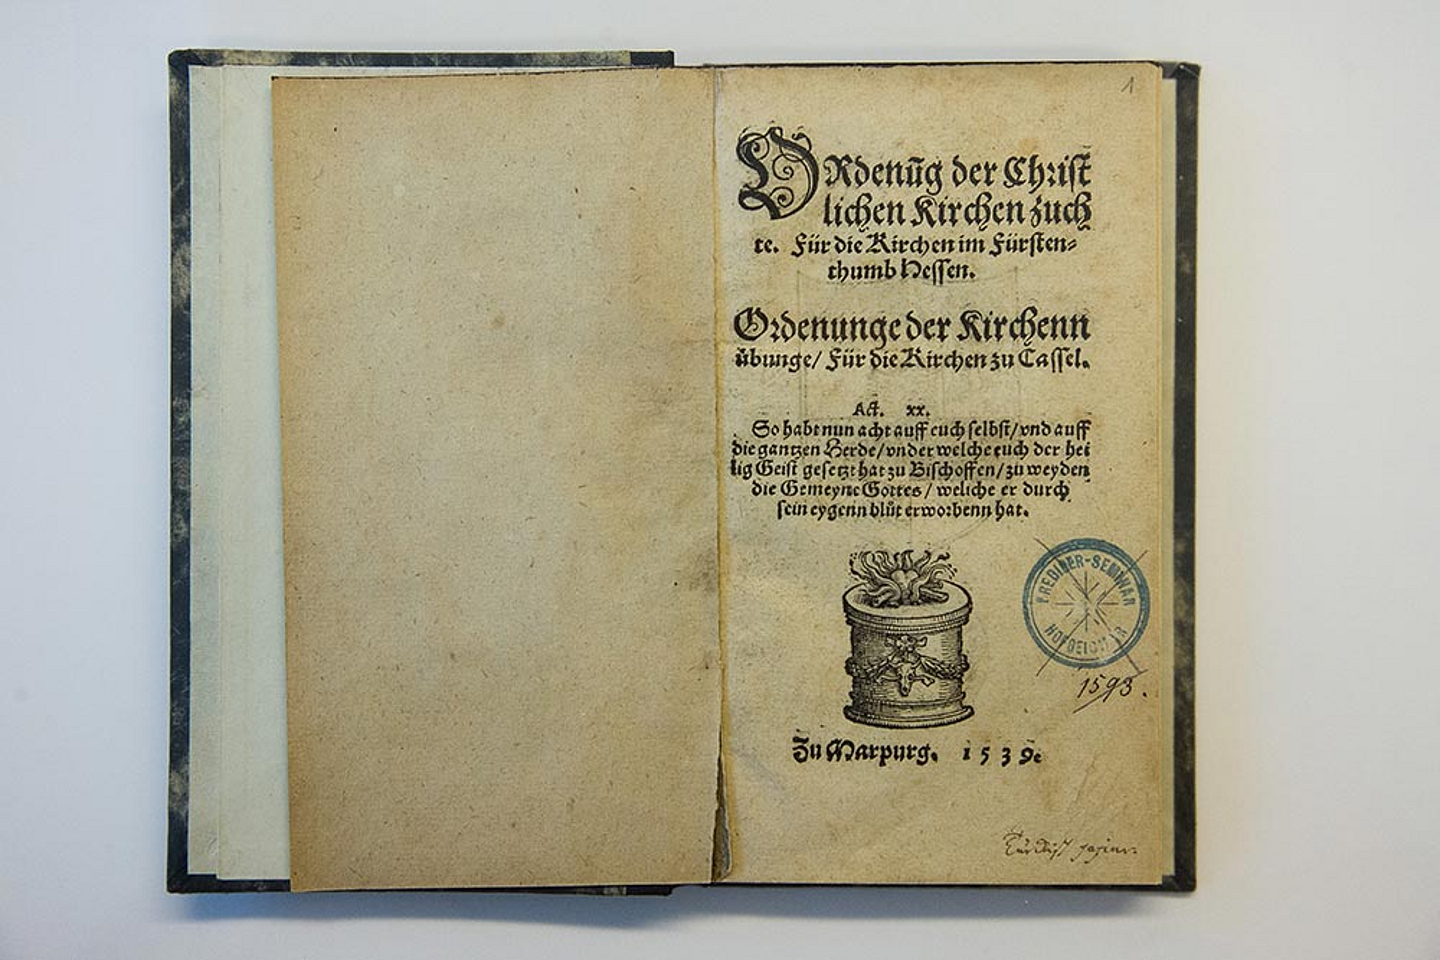 1
ORdenũg der Christ
lichen Kirchen zuch
te. Für die Kirchen im Fürsten⸗
thumb Hessen.
Ordenunge der Kirchenn
übunge/ Für die Kirchen zu Cassel.
Act. xx.
So habt nun acht auff euch selbst/ vnd auff
die gantzen Herde/ vnder welche euch der hei
lig Geist gesetzt hat zu Bischoffen/ zu weyden
die Gemeyne Gottes/ weliche er durch
sein eygenn blůt erworbenn hat.
PREDIGER-SEMINAR
HOFGEISMAR
1593.
Zu Marpurg. 1539.